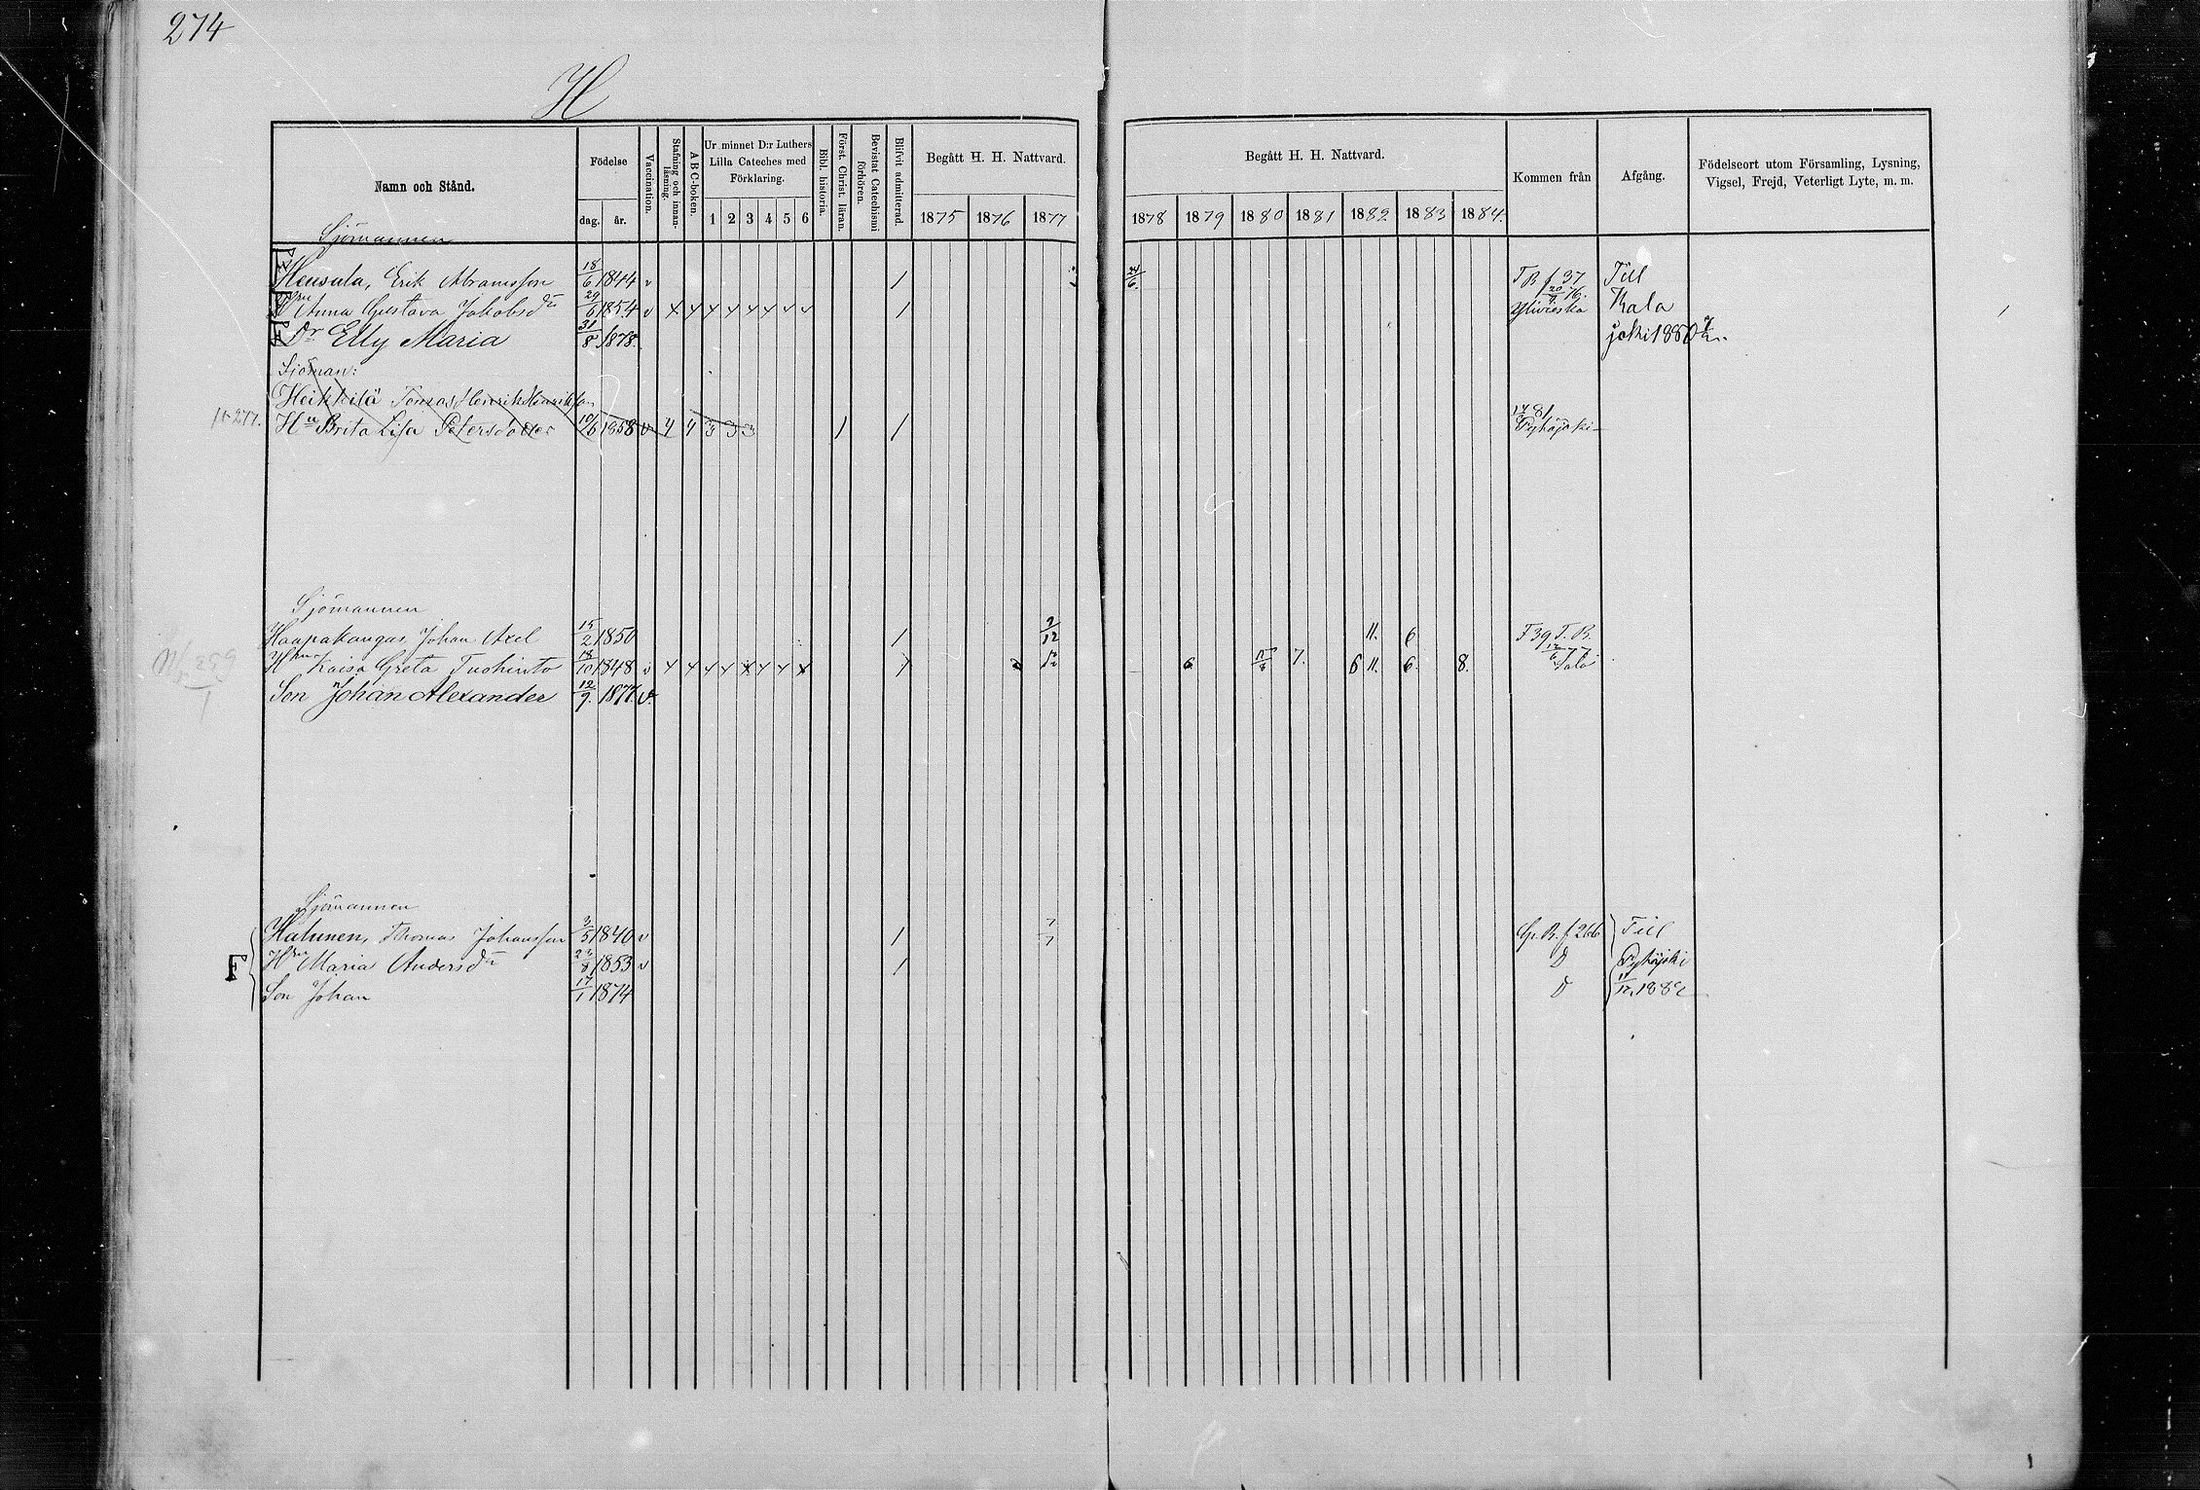 274
H
Namn och Stånd.
Födelse
dag. år.
Vaccination.
Stafning och innan-
läsning.
A B C-boken.
Ur minnet D:r Luthers
Lilla Cateches med
Förklaring.
1 2 3 4 5 6
Bibl. historia.
Först. Christ. läran.
Bevistat Catechismi
förhören.
Blifvit admitterad.
Begått H. H. Nattvard.
1875 1876 1877
Begått H. H. Nattvard.
1878 1879 1880 1881 1882 1883 1884.
Kommen från
Afgång.
Födelseort utom Församling, Lysning,
Vigsel, Frejd, Veterligt Lyte, m. m.
Sjömannen
Erik Abramsson 18/6 1844 v / 24/6. T B f 37 Till
Anna Gustava Jakobsdr 29/6 1854 v / Ylivieska Kala
Dr Elly Maria 31/8 1878. joki 1880
Sjöman:
Heikkilä Tomas Henrik Henriksson
Hu Brita Lisa Petersdotter 10/6 1858 v 4 4 3 3 3 / / Pyhäjoki
Sjömannen
Haapakangas, Johan Axel 15/2 1850 / 9/12 11. 6 F 39 T. B.
Hru Kaisa Greta Tuohinto 18/10 1848 v 6 7. 6 11. 6. 8. Salo
Son Johan Alexander 12/9. 1877. v.
Sjömannen
Halunen, Thomas Johansson 3/5 1840 v / G. B. f 266 Till
F Hru Maria Andersdr 1853 v / D Pyhäjoki
Son Johan 17/1 1874 D 1882